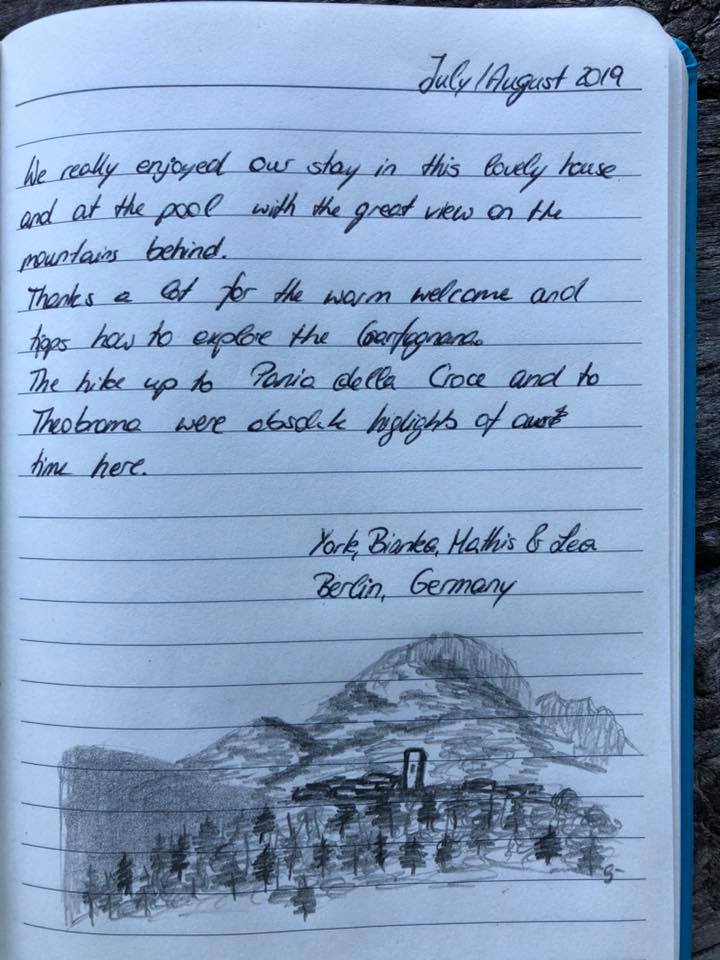 July/August 2019
We really enjoyed our stay in this lovely house
and at the pool with the great view on the
mountains behind.
Thanks a lot for the warm welcome and
tipps how to explore the Garfagnana.
The hike up to Pania della Croce and to
Theobroma were absolute higlights of our
time here.
York, Bianka, Mathis & Lea
Berlin, Germany